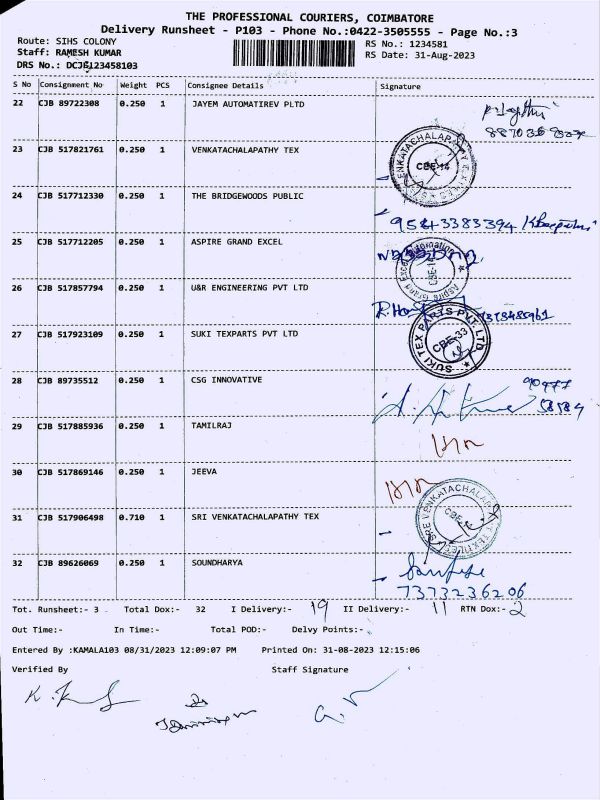 THE PROFESSIONAL COURIERS, COIMBATORE
Delivery Runsheet - P103 - Phone No.:0422-3505555 - Page No.:3
Route: SIHS COLONY
Staff: RAMESH KUMAR
DRS No.: DCJB123458103
RS No.: 1234581
RS Date: 31-Aug-2023
S No Consignment No Weight PCS Consignee Details Signature
22 CJB 89722308 0.250 1 JAYEM AUTOMATIREV PLTD
23 CJB 517821761 0.250 1 VENKATACHALAPATHY TEX
CBE-14
24 CJB 517712330 0.250 1 THE BRIDGEWOODS PUBLIC
9543383394
25 CJB 517712205 0.250 1 ASPIRE GRAND EXCEL
26 CJB 517857794 0.250 1 U&R ENGINEERING PVT LTD
27 CJB 517923109 0.250 1 SUKI TEXPARTS PVT LTD
SUKI TEX PARTS PVT. LTD
CBE-33
28 CJB 89735512 0.250 1 CSG INNOVATIVE
29 CJB 517885936 0.250 1 TAMILRAJ
30 CJB 517869146 0.250 1 JEEVA
31 CJB 517906498 0.710 1 SRI VENKATACHALAPATHY TEX
32 CJB 89626069 0.250 1 SOUNDHARYA
7373236206
Tot. Runsheet:- 3 Total Dox:- 32 I Delivery:- 19 II Delivery:- 11 RTN Dox:- 2
Out Time:- In Time:- Total POD:- Delvy Points:-
Entered By :KAMALA103 08/31/2023 12:09:07 PM Printed On: 31-08-2023 12:15:06
Verified By Staff Signature